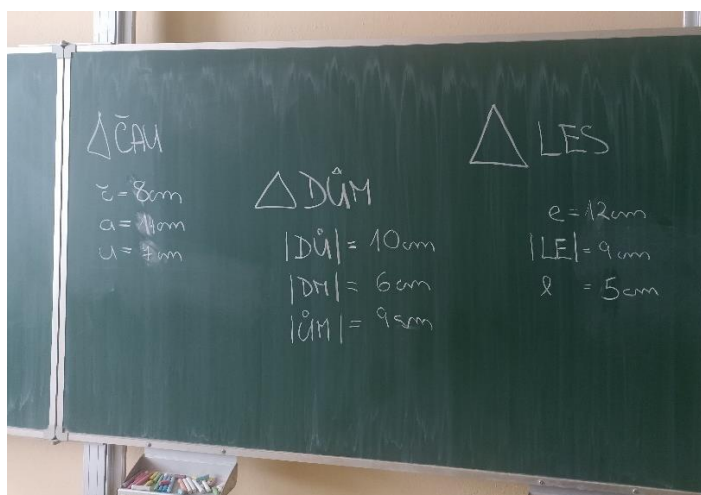 △ ČAU
č = 8cm
a = 11cm
u = 7cm
△ DŮM
|DŮ| = 10cm
|DM| = 6cm
|ŮM| = 9cm
△ LES
e = 12cm
|LE| = 9cm
l = 5cm